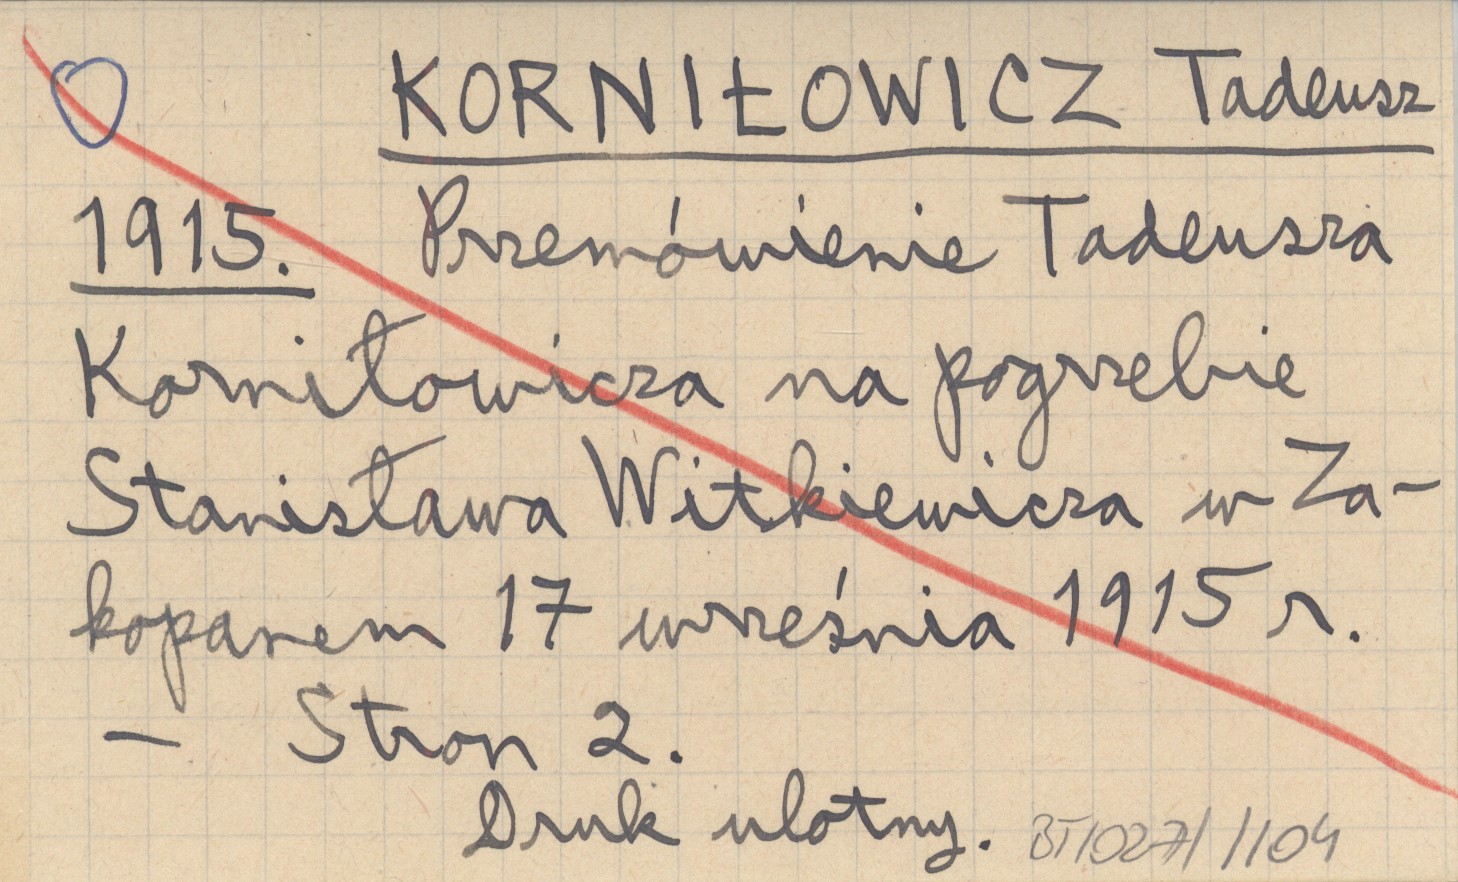 KORNIŁOWICZ Tadeusz
1915. Przemówienie Tadeusza
Korniłowicza na pogrzebie
Stanisława Witkiewicza w Za-
kopanem 17 września 1915 r.
— Stron 2.
Druk ulotny.
BT/027/1104